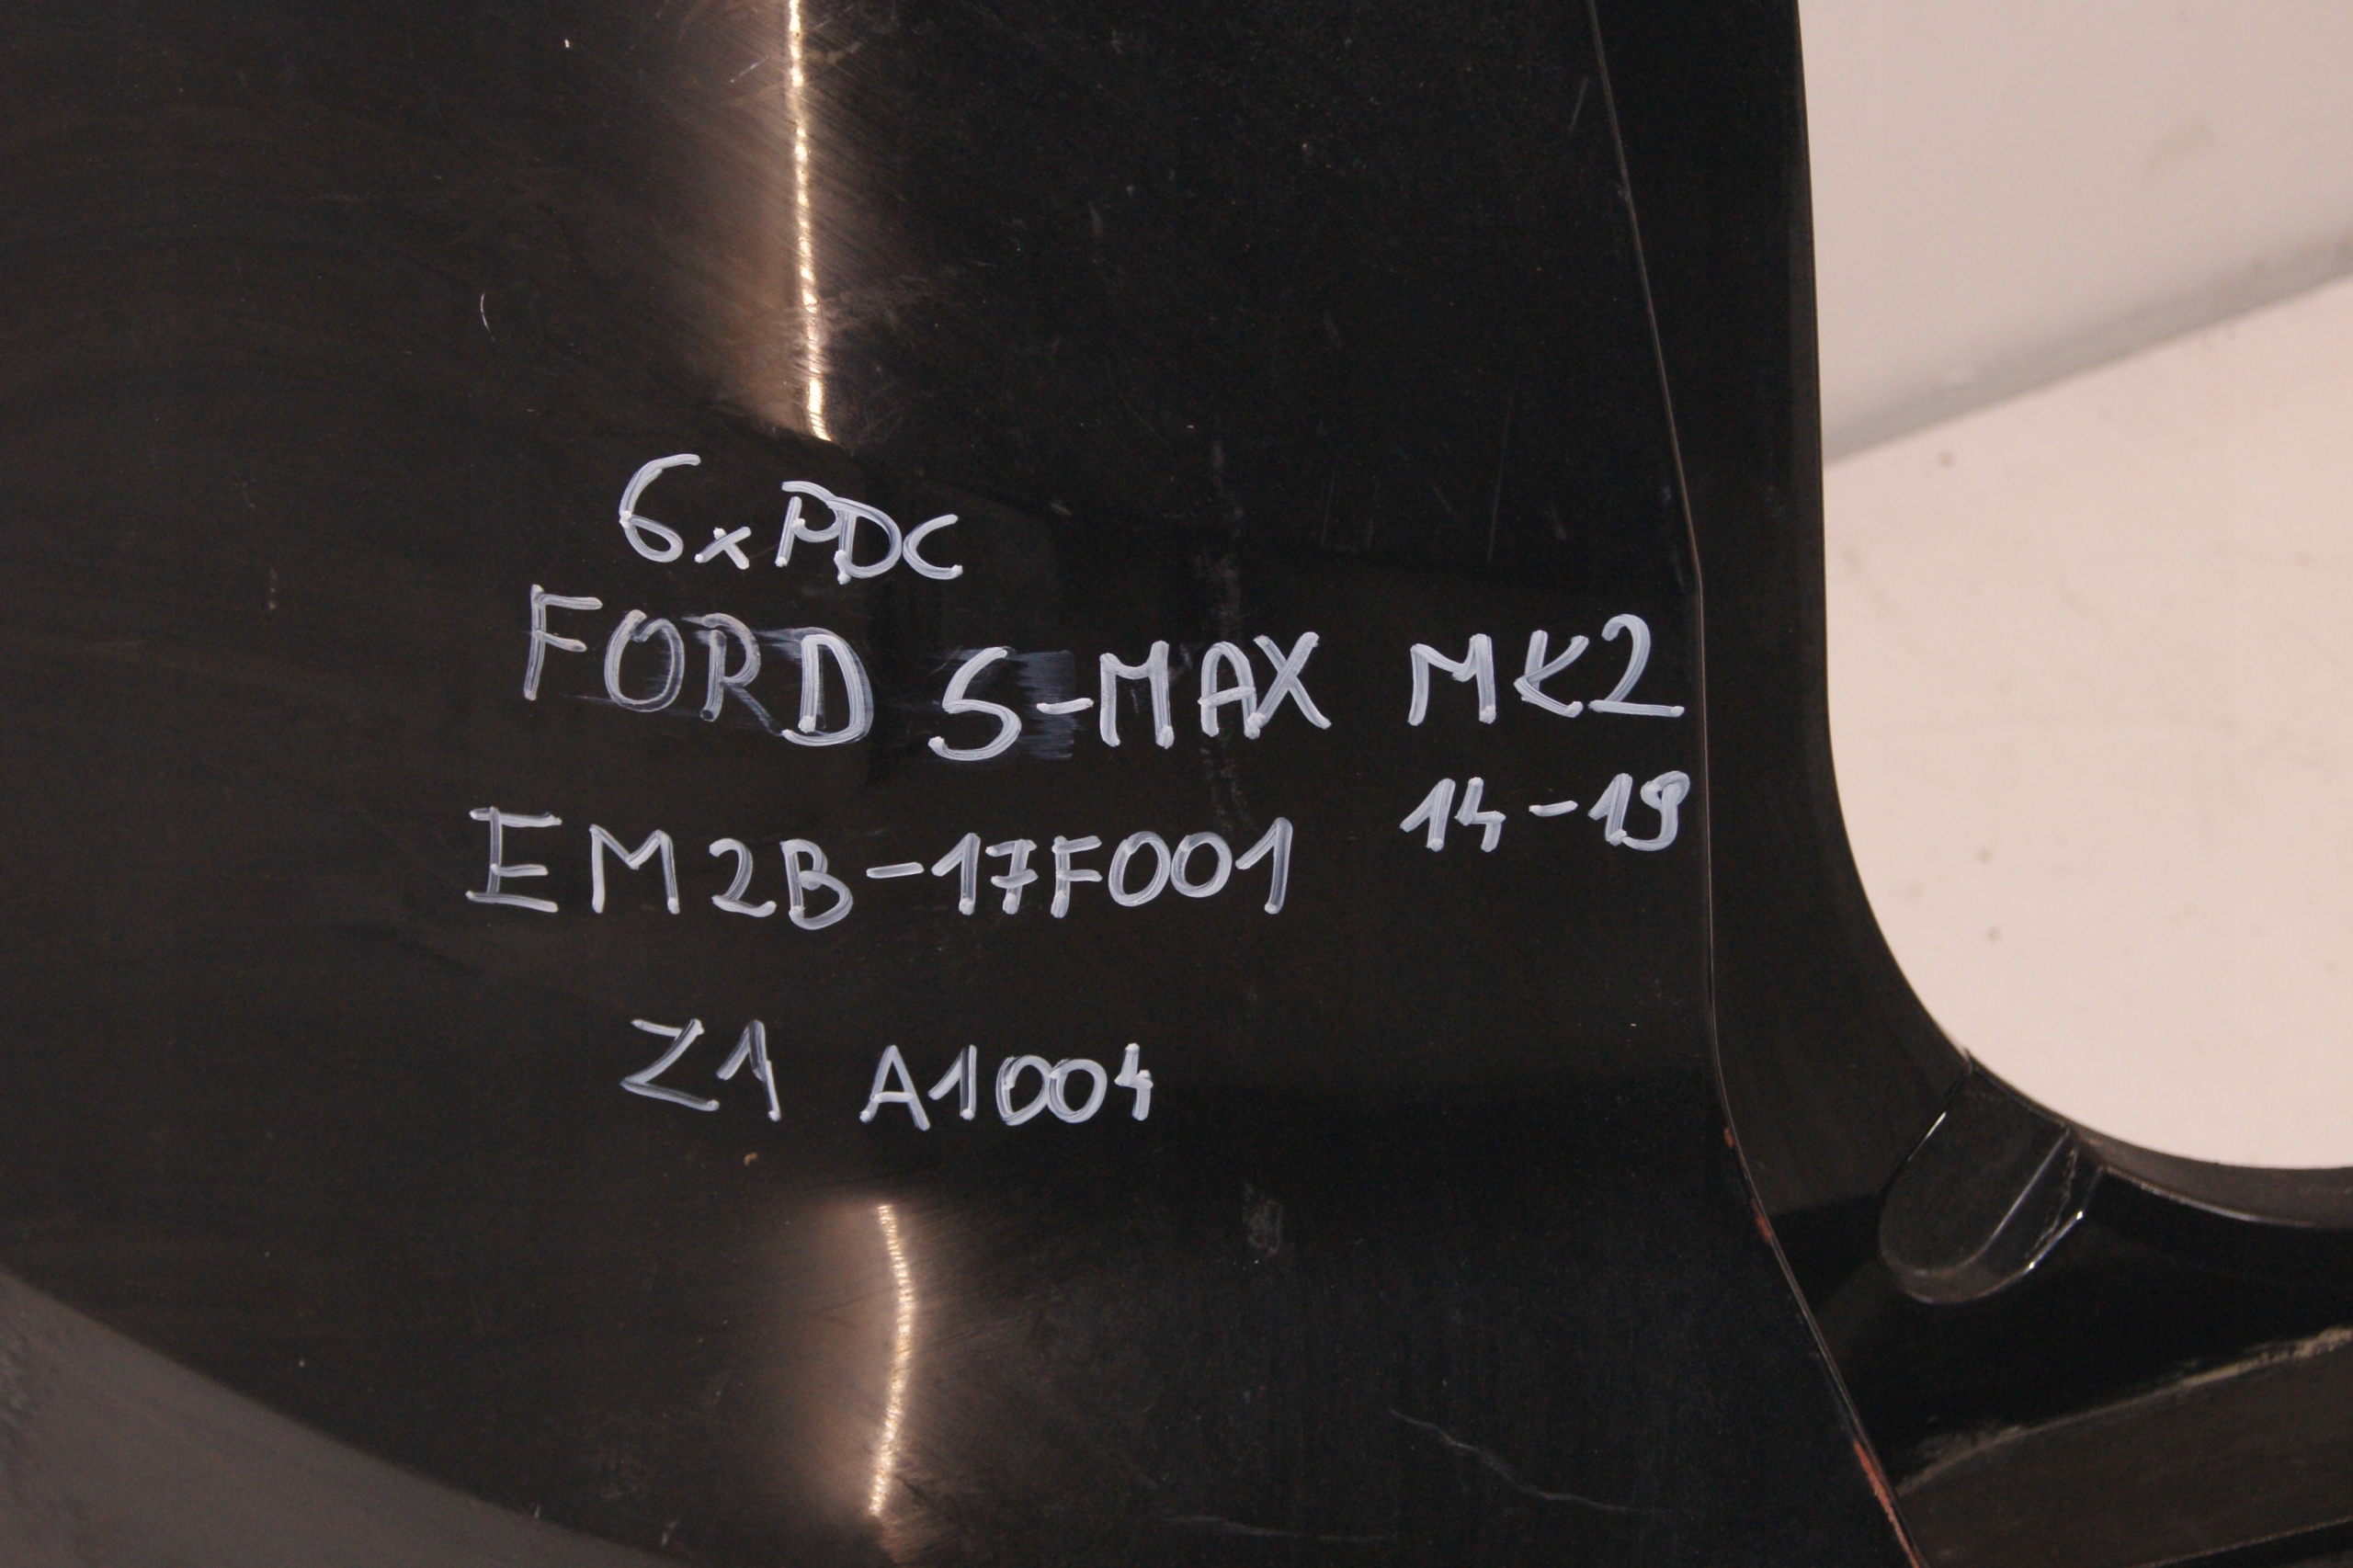 6xPDC
FORD S-MAX MK2
14-19
EM2B-17F001
Z1 A1004